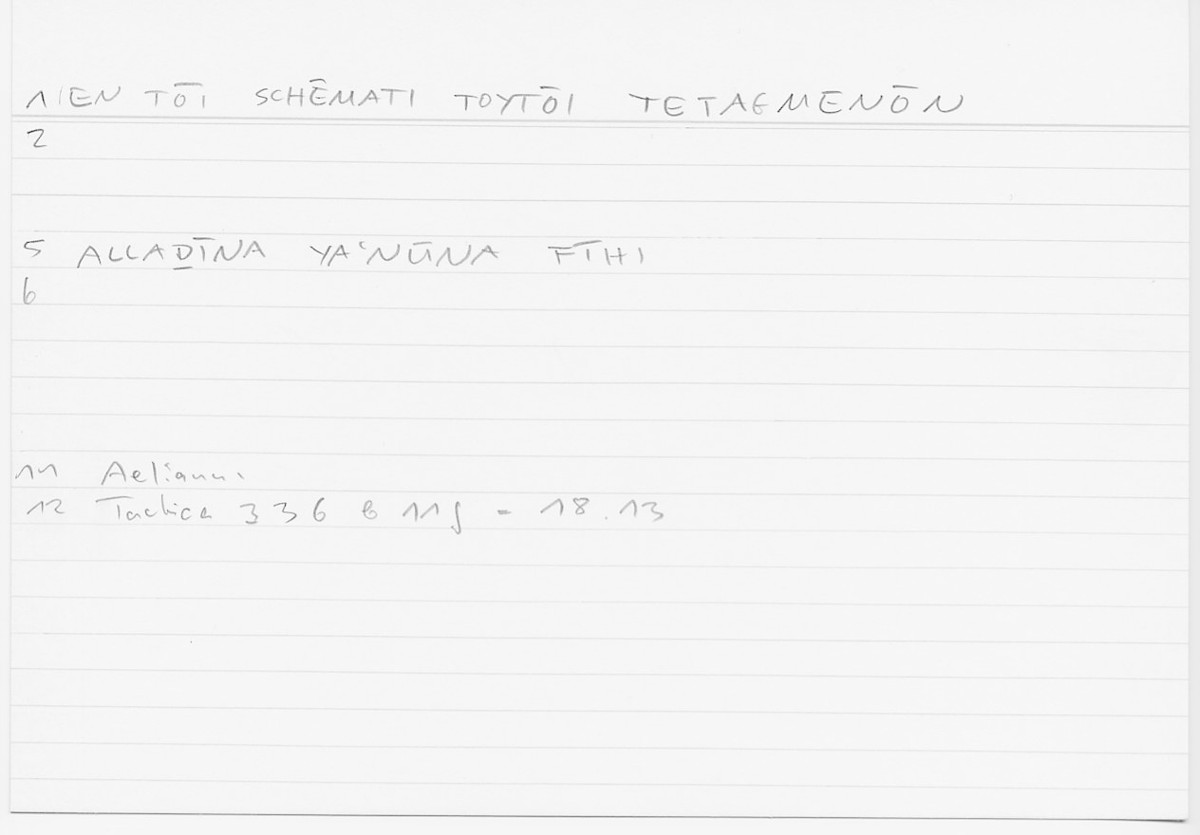 1 EN TŌI SCHĒMATI TOYTŌI TETAGMENŌN
2
5 ALLAḎĪNA YAʿNŪNA FĪHI
6
11 Aelianus
12 Tactica 336 b 11f = 18.13